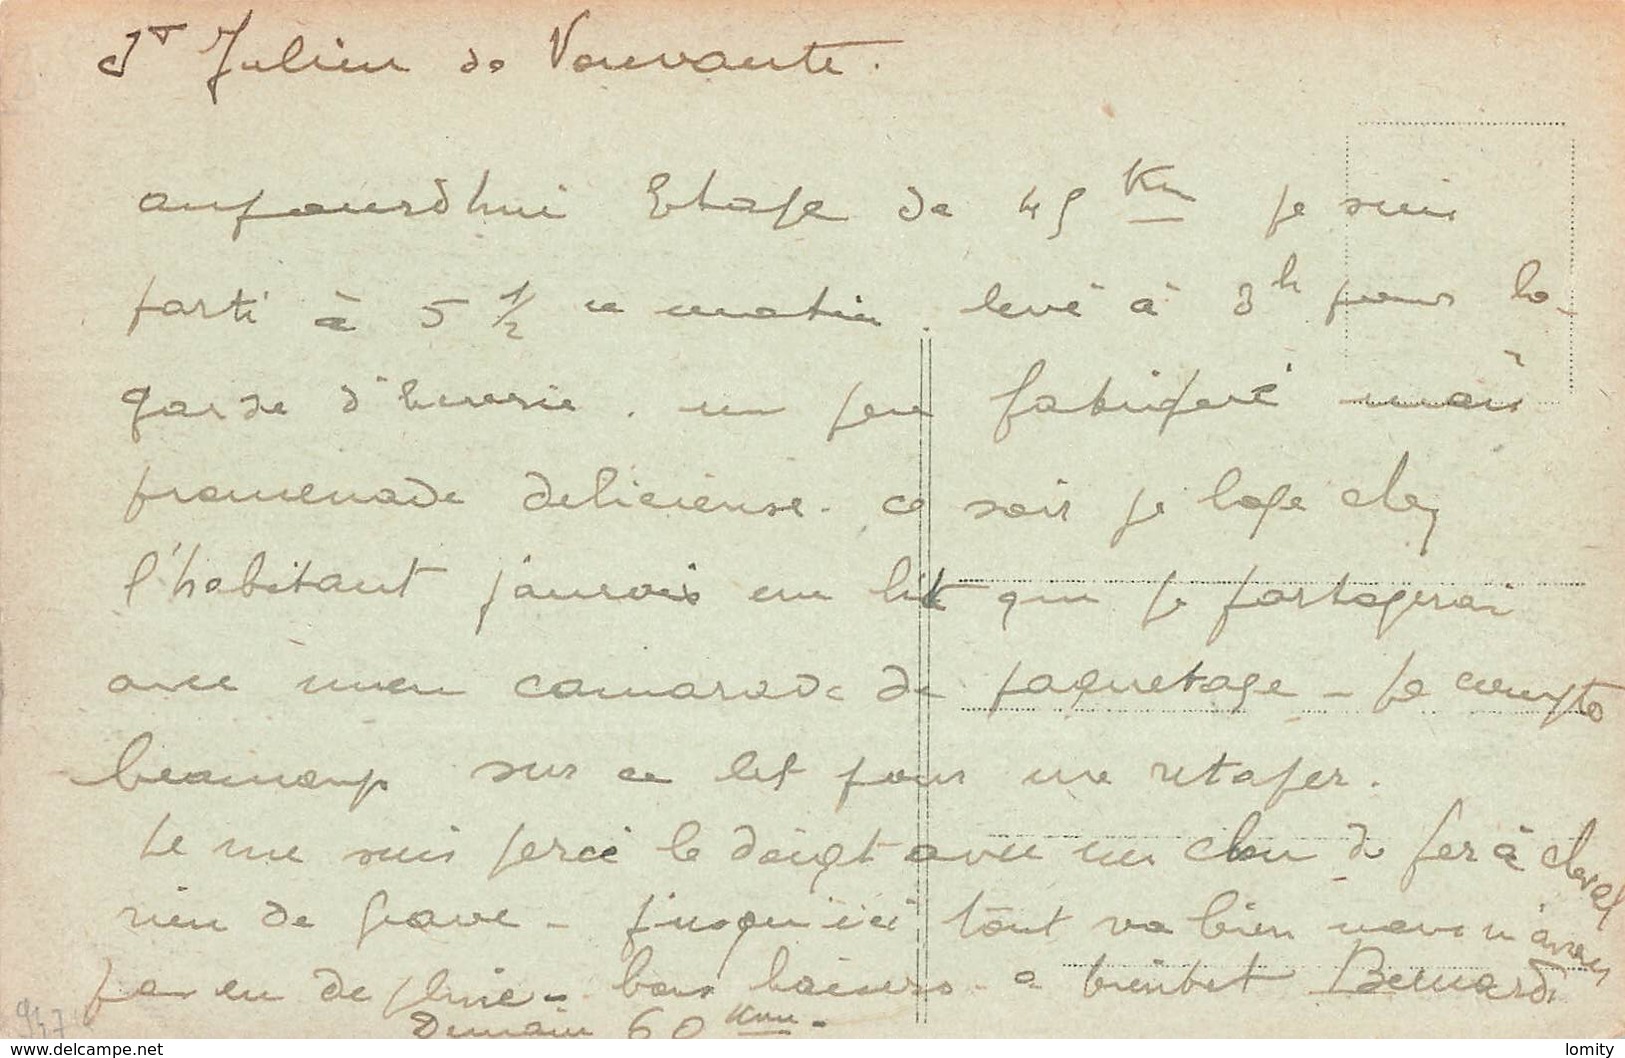 St Julien de Vouvante.
aujourd'hui Etape de 45 Km je suis
parti à 5 1/2 ce matin. levé à 3h pour la
garde d'écurie. un peu fatigué mais
promenade delicieuse. ce soir je loge chez
l'habitant j'aurais un lit que je partagerai
avec mon camarade de paquetage - je compte
beaucoup sur ce lit pour me retaper.
Je me suis percé le doigt avec un clou de fer à cheval
rien de grave - jusqu'ici tout va bien nous n'avons
pas eu de pluie - bons baisers. a bientôt Bernard
Demain 60 Km.
947
www.delcampe.net
lomity